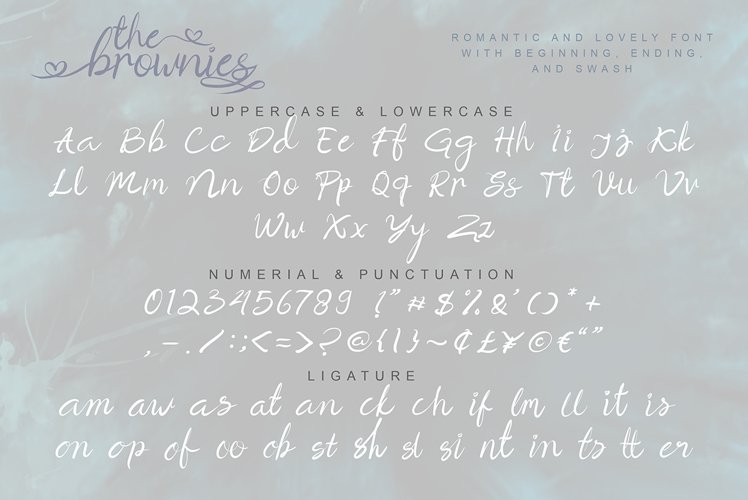 the
brownies
ROMANTIC AND LOVELY FONT
WITH BEGINNING, ENDING,
AND SWASH
UPPERCASE & LOWERCASE
Aa Bb Cc Dd Ee Ff Gg Hh Ii Jj Kk
Ll Mm Nn Oo Pp Qq Rr Ss Tt Uu Vv
Ww Xx Yy Zz
NUMERIAL & PUNCTUATION
0123456789 !"#$%&'()*+
,-./:;<=>?@{|}~¢£¥©€“”
LIGATURE
am aw as at an ck ch if lm ll it is
on op of co ob st sh sl si nt in ts tt er